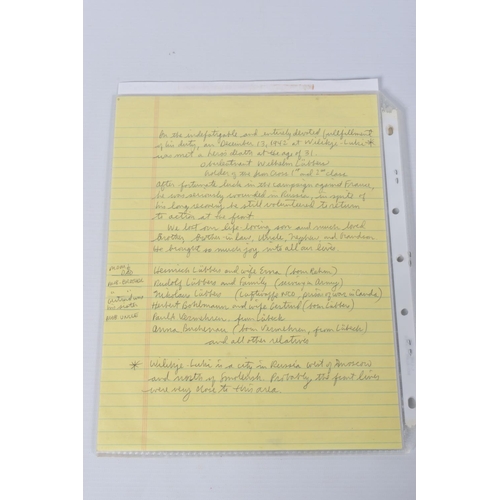 In the indefatigable and entirely devoted fullfillment
of his duty, on December 13, 1942 at Welikije-Luki *
was met a heros death at the age of 31.
Oberleutnant Wilhelm Lübbers
holder of the Iron Cross 1st and 2nd class
After fortunate luck in the campaign against France,
he was seriously wounded in Russia, in spite of
his long recovery he still volunteered to return
to action at the front.
We lost our life-loving son and much loved
Brother, Brother in law, Uncle, Nephew and Grandson.
He brought so much joy into all our lives.
Heinrich Lübbers and wife Erna (born
Rudolf Lübbers and Family (serving in Army)
Nikolaus Lübbers (Luftwaffe NCO, prisoner of war in Canada)
Herbert Bohlmann and wife Gertrud (born Lübbers)
Paul Vermehren, from Lübeck
Anna (born Vermehren, from Lübeck)
and all other relatives
* Welikije-Luki is a city in Russia west of Moscow
and north of Smolensk. Probably the front lines
were very close to this area.